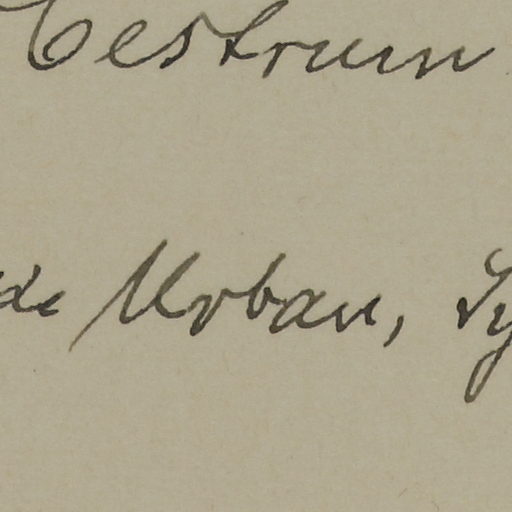 Cestrum
de Urban, Sy